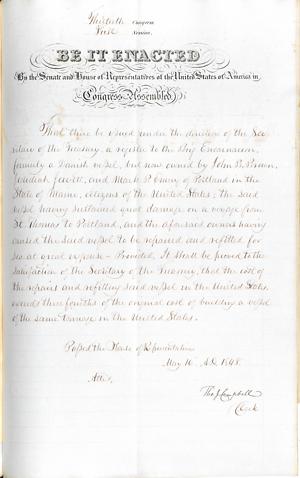 Thirtieth Congress
First Session,
BE IT ENACTED
By the Senate and House of Representatives of the United States of America in
Congress Assembled
That there be issued under the direction of the Sec-
retary of the Treasury, a register to the Brig Encarnacion,
formerly a Danish vessel, but now owned by John B. Brown,
Jedediah Jewett, and Mark P. Emery of Portland in the
State of Maine, citizens of the United States; the said
vessel having sustained great damage on a voyage from
St. Thomas to Portland, and the aforesaid owners having
caused the said vessel to be repaired and refitted for
sea at great expense – Provided, It shall be proved to the
satisfaction of the Secretary of the Treasury, that the cost of
the repairs and refitting said vessel in the United States
exceeds three fourths of the original cost of building a vessel
of the same tonnage in the United States.
Passed the House of Representatives
May 16. A.D. 1848.
Attest,
Tho. J. Campbell
Clerk